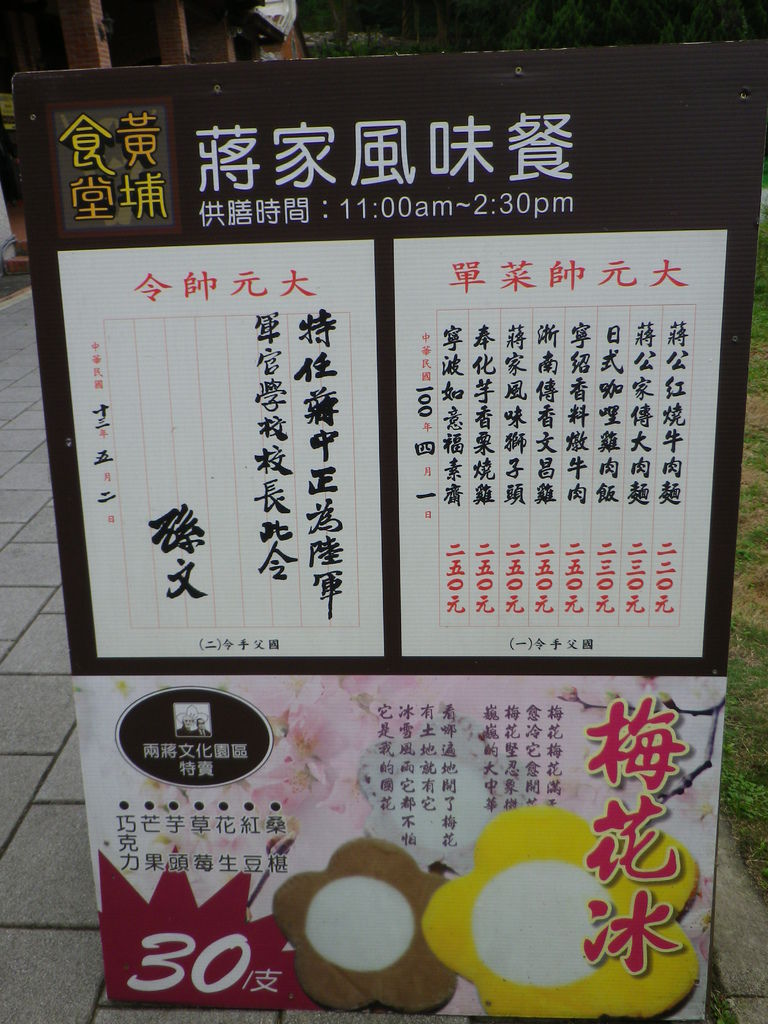 黃埔
食堂
蔣家風味餐
供膳時間：11:00am~2:30pm
大元帥菜單
蔣公紅燒牛肉麵 二二〇元
蔣公家傳大肉麵 二三〇元
日式咖哩雞肉飯 二三〇元
寧紹香料燉牛肉 二五〇元
浙南傳香文昌雞 二五〇元
蔣家風味獅子頭 二五〇元
奉化芋香栗燒雞 二五〇元
寧波如意福素齋 二五〇元
中華民國100年四月一日
國父手令(一)
大元帥令
特任蔣中正為陸軍
軍官學校校長此令
孫文
中華民國十三年五月二日
國父手令(二)
梅花冰
梅花梅花滿天
愈冷它愈開花
梅花堅忍象徵
巍巍的大中華
看哪遍地開了梅花
有土地就有它
冰雪風雨它都不怕
它是我的國花
兩蔣文化園區
特賣
桑椹
紅豆
花生
草莓
芋頭
芒果
巧克力
30/支